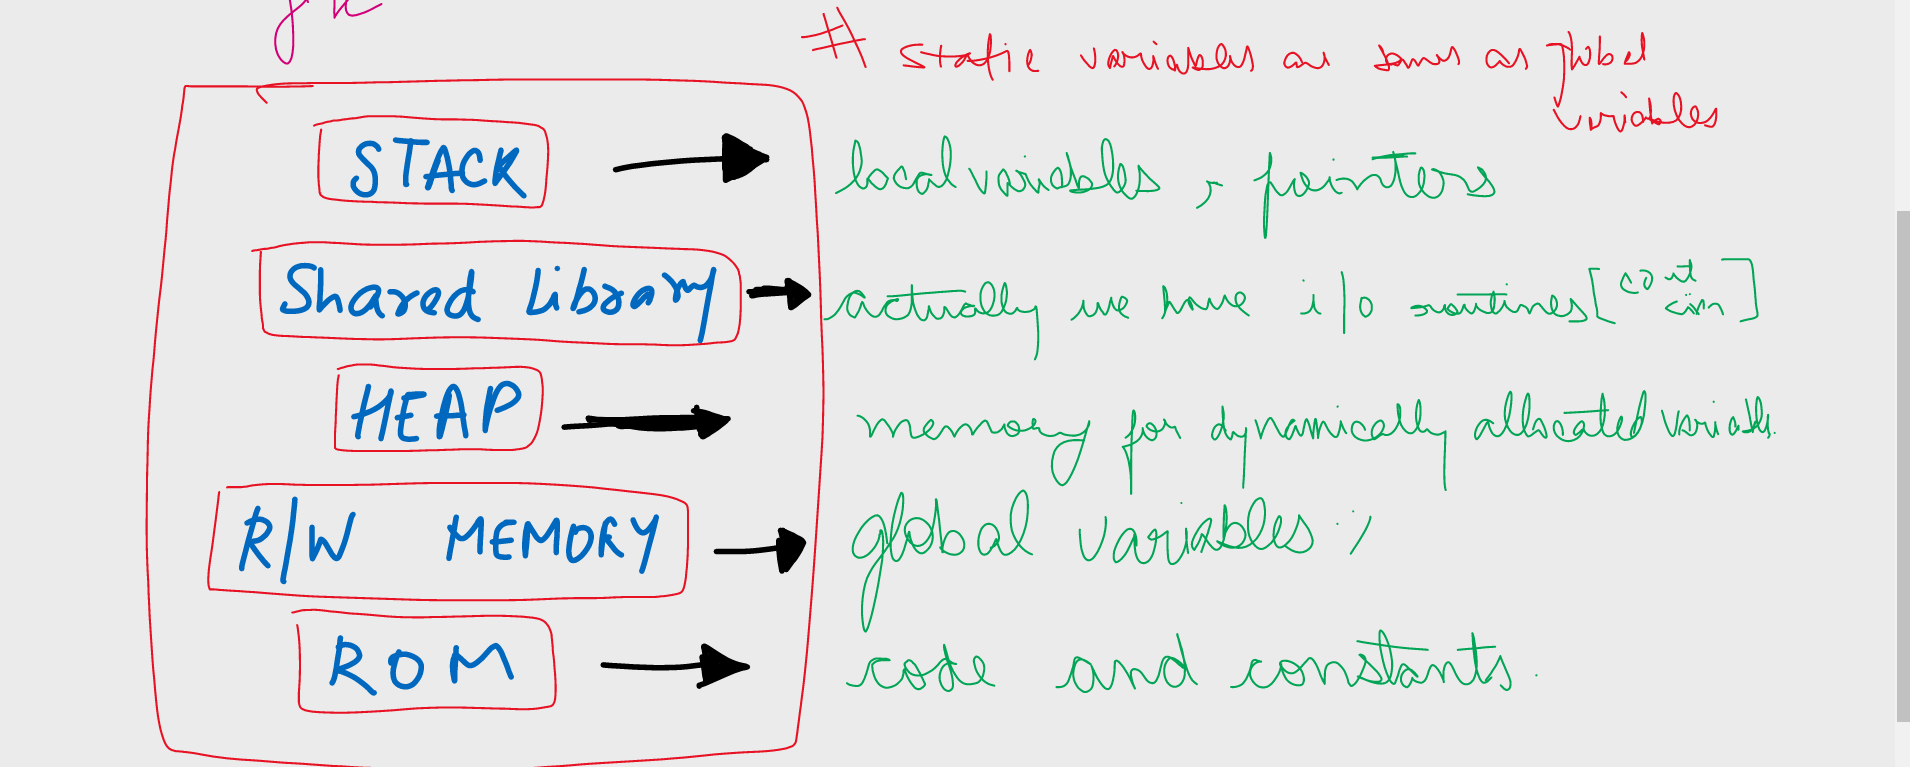 # static variables are same as global
variables
STACK
local variables, pointers
Shared Library
actually we have i/o routines [cout
cin]
HEAP
memory for dynamically allocated variabls.
R/W MEMORY
global variables.
ROM
code and constants.